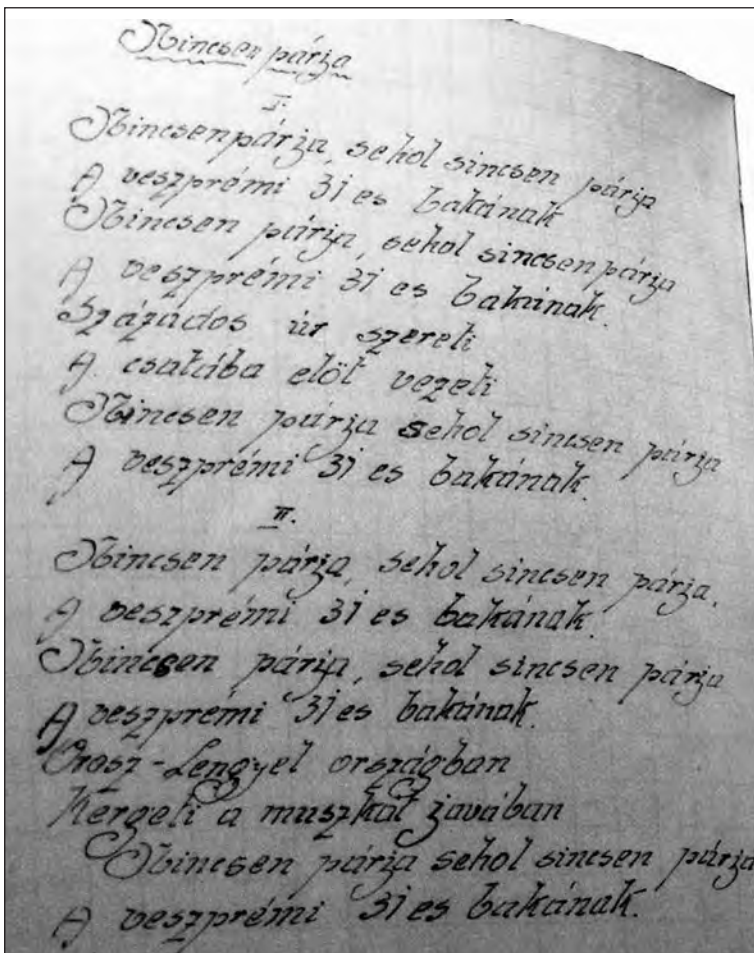 Nincsen párja
I.
Nincsen párja, sehol sincsen párja
A veszprémi 31 es bakának
Nincsen párja, sehol sincsen párja
A veszprémi 31 es bakának.
Százádos úr szereti
A csatába elöt vezeti
Nincsen párja sehol sincsen párja
A veszprémi 31 es bakának.
II.
Nincsen párja, sehol sincsen párja,
A veszprémi 31 es bakának.
Nincsen párja, sehol sincsen párja
A veszprémi 31 es bakának.
Orosz-Lengyel országban
Kergeti a muszkát javában
Nincsen párja sehol sincsen párja
A veszprémi 31 es bakának.